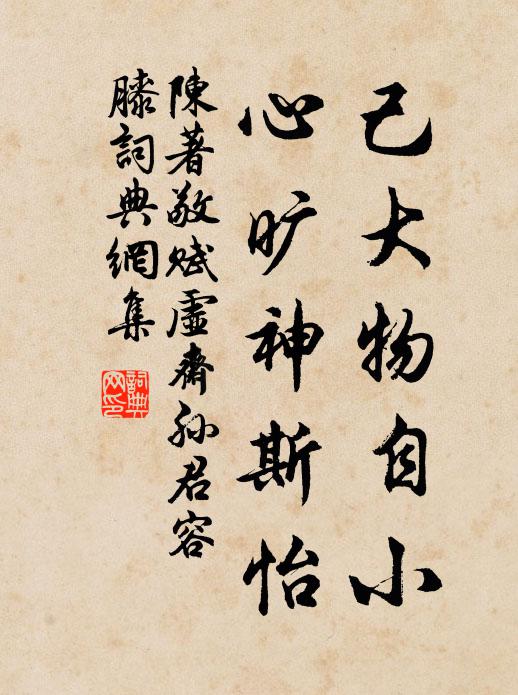 己大物自小
心旷神斯怡
陳著敬赋虛齋孙君容
膝詞典網集
詞典网印